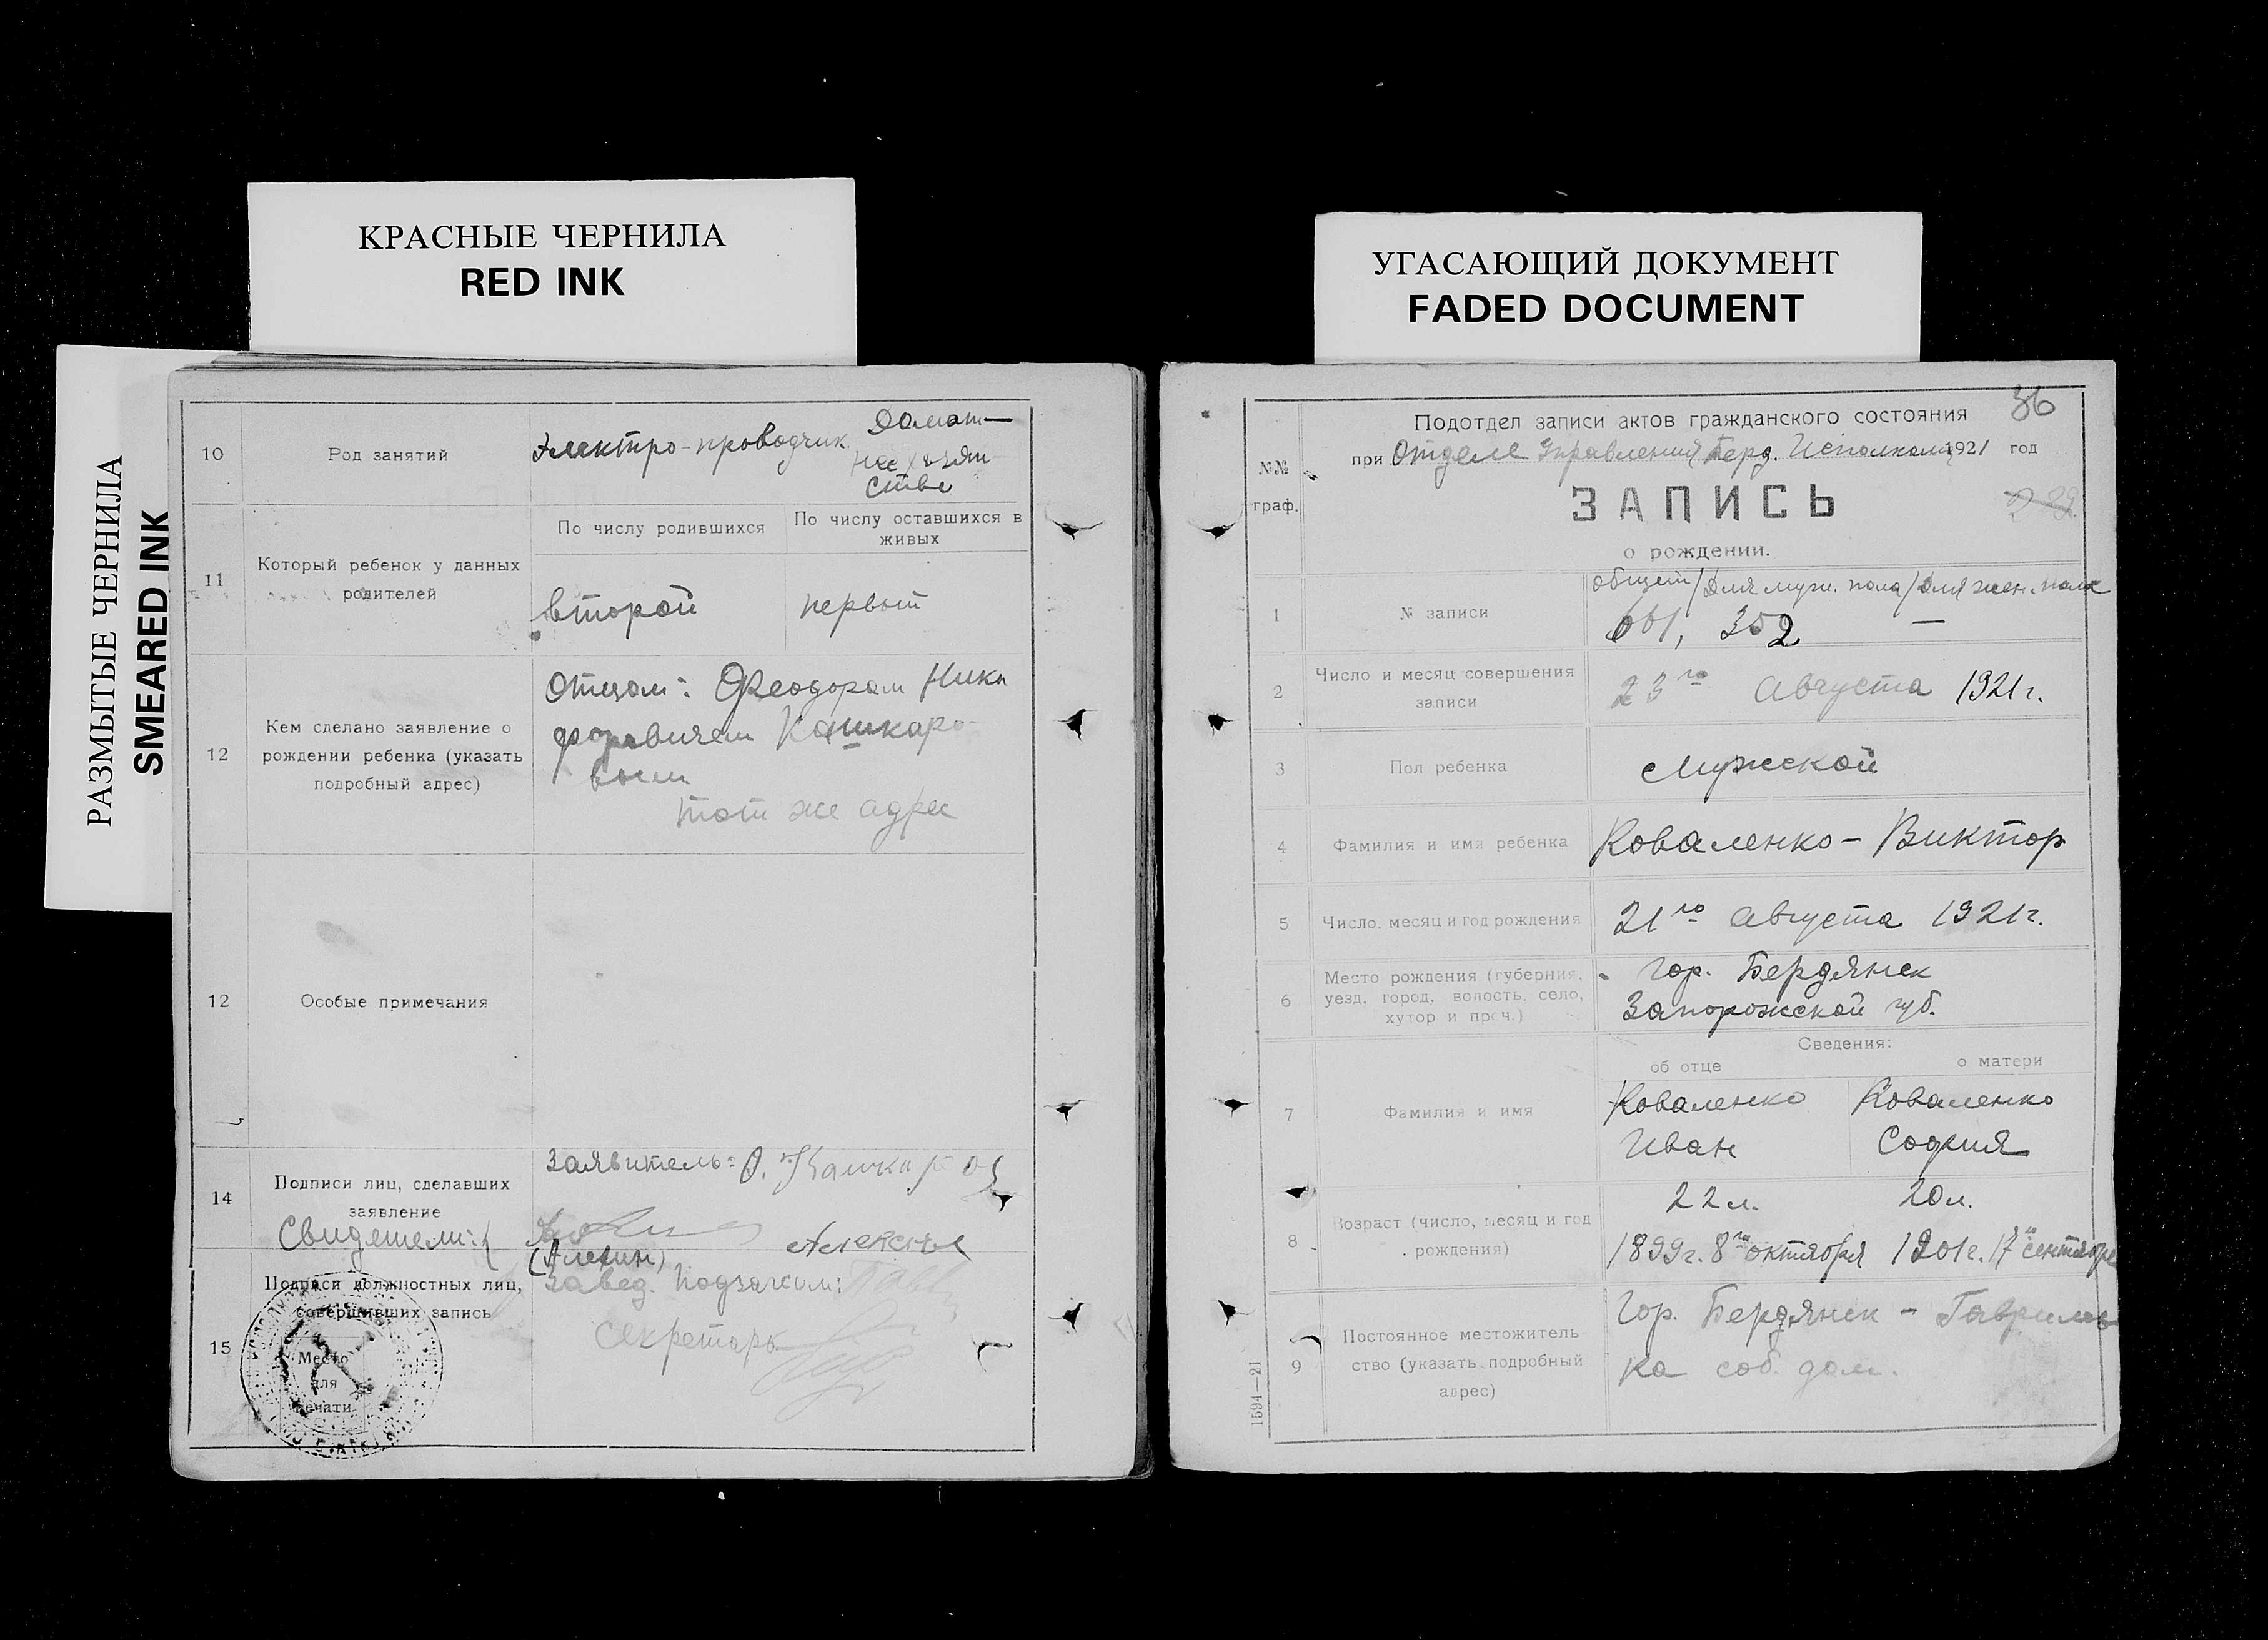 КРАСНЫЕ ЧЕРНИЛА
RED INK
РАЗМЫТЫЕ ЧЕРНИЛА
SMEARED INK
10
Род занятий
Электро-проводчик
Домаш—
ст
11
Который ребенок у данных
родителей
По числу родившихся
По числу оставшихся в
живых
второй
первый
12
Кем сделано заявление о
рождении ребенка (указать
подробный адрес)
Отцом: Феодором Ники
форовичем Кашкаро-
вым
тот же адрес
12
Особые примечания
14
Подписи лиц, сделавших
заявление
Свидетели:
Заявитель:
(Алехин)
15
Подписи должностных лиц,
совершивших запись
Место
для
печати
Завед. Подзагсом:
Секретарь
УГАСАЮЩИЙ ДОКУМЕНТ
FADED DOCUMENT
36
№№
граф.
Подотдел записи актов гражданского состояния
при Отделе Управления Берд. Исполкома 1921 год
ЗАПИСЬ
о рождении.
1
№ записи
общий/для муж. пола/для жен. пола
661, 352 —
2
Число и месяц совершения
записи
23го Августа 1921 г.
3
Пол ребенка
Мужской
4
Фамилия и имя ребенка
Коваленко - Виктор
5
Число, месяц и год рождения
21го Августа 1921 г.
6
Место рождения (губерния,
уезд, город, волость, село,
хутор и проч.)
Гор. Бердянск
Запорожской губ.
Сведения:
об отце
о матери
7
Фамилия и имя
Коваленко
Иван
Коваленко
София
8
Возраст (число, месяц и год
рождения)
22 л.
20 л.
1899 г. 8го октября
1901 г. 17 сентября
9
Постоянное местожитель-
ство (указать подробный
адрес)
Гор. Бердянск - Гаврилов
ка соб. дом.
1594—21